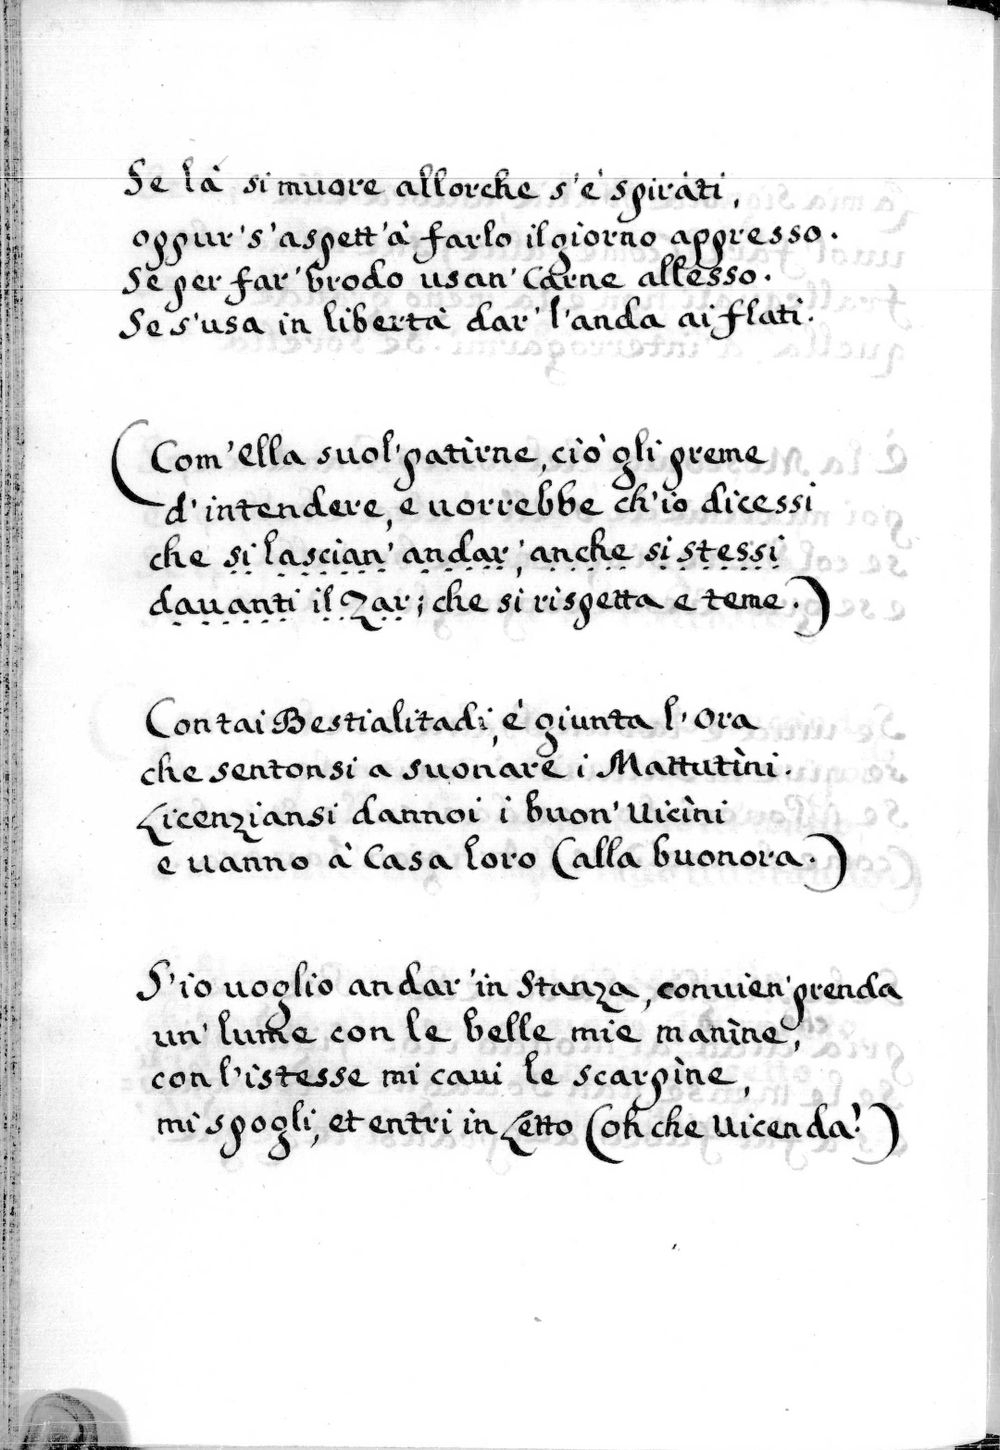 Se là si muore allorche s'è spiràti,
oppur's'aspett'à farlo il giorno appresso.
Se per far'brodo usan'Carne allesso.
Se s'usa in libertà dar'l'anda ai flati.
(Com'Ella suol'patìrne, ciò gli preme
d'intendere, e vorrebbe ch'io dicessi
che si lascian'andar', anche si stessi
davanti il Zar; che si rispetta e teme.)
Con tai Bestialitadi, è giunta l'Ora
che sentonsi a suonare i Mattutìni.
Licenziansi dannoi i buon'Vicìni
e vanno à Casa loro (alla buonora.)
S'io voglio andar'in Stanza, convien'prenda
un'lume con le belle mie manìne,
con l'istesse mi cavi le scarpìne,
mi spogli, et entri in Letto (oh che Vicenda!)